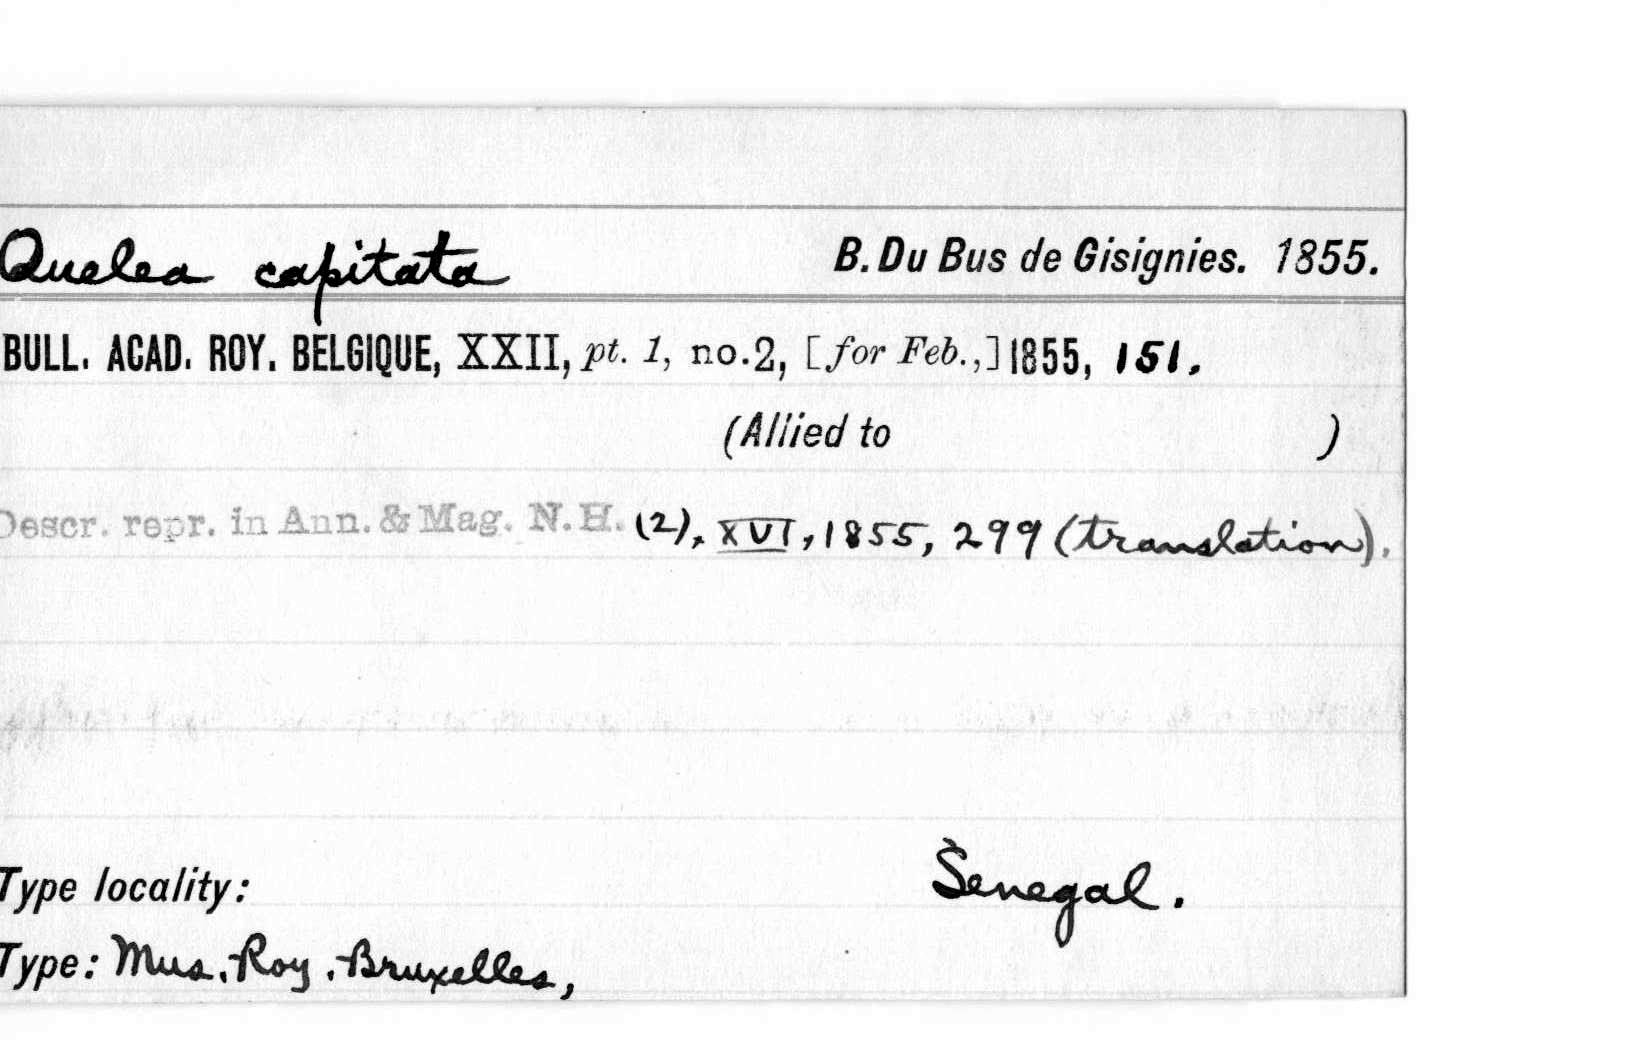 Quelea capitata B. Du Bus de Gisignies. 1855.
BULL. ACAD. ROY. BELGIQUE, XXII, pt. 1, no.2, [for Feb.,] 1855, 151.
(Allied to )
Descr. repr. in Ann. & Mag. N.H. (2), XVI, 1855, 299 (translation).
Type locality: Senegal.
Type: Mus. Roy. Bruxelles,